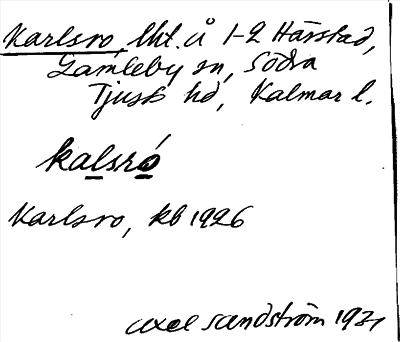 Karlsro, lht. å 1-2 Härstad,
Gamleby sn, Södra
Tjust hd, Kalmar l.
kalsró
Karlsro, kb 1926
Axel Sandström 1931